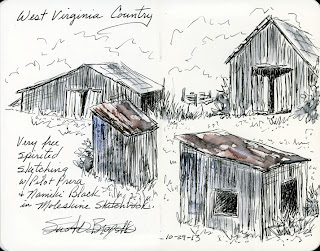 West Virginia Country
Very free
Spirited
Sketching
w/Pilot Prera
& Namiki Black
in Moleskine Sketchbook
10-29-13